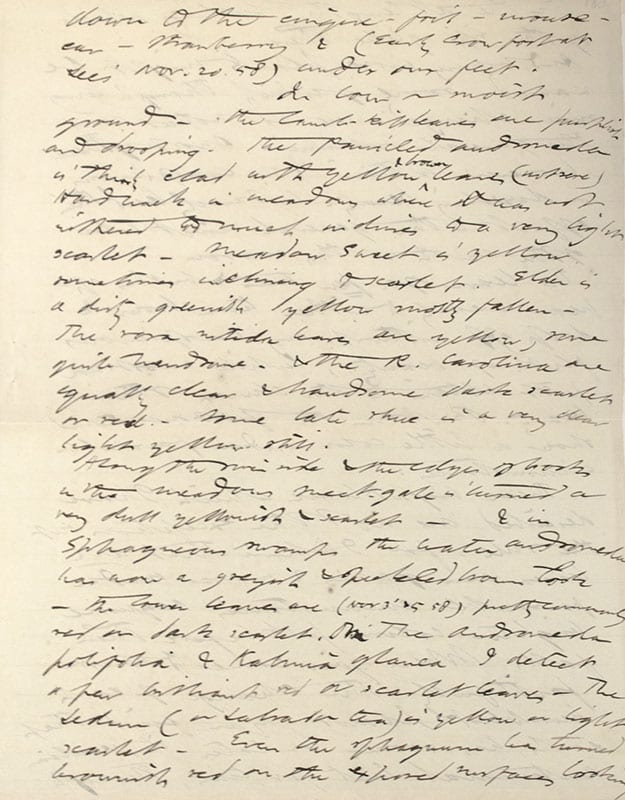 down to the cinque-foil - mouse-
ear - Strawberry & (Early Crowfoot at
Lee's Nov. 20. 58) under our feet.
In low & moist
ground - the lamb-kill leaves are purplish
and drooping. The Panicled andromeda
is thinly clad with yellow & brown leaves (not sere)
Hardhack in meadows where it was not
withered too much inclines to a very light
scarlet - Meadow Sweet is yellow
sometimes inclining to scarlet. Elder is
a dirty greenish yellow mostly fallen -
The rosa nitida leaves are yellow, some
quite handsome - & the R. Carolina are
equally clear & handsome dark scarlet
or red. - Some late rhus is a very clear
light yellow still.
Along the river side & the edges of
in the meadows sweet-gale is turned a
very dull yellowish & scarlet - & in
Sphagneous swamps the water andromeda
has now a greyish & speckled brown look
- the lower leaves are (Nov 3' 58) pretty commonly
red or dark scarlet. The Andromeda
polifolia & Kalmia glauca I detect
a few brilliant red or scarlet leaves - The
Ledum (or Labrador tea) is yellow or light
scarlet - Even the sphagnum has turned
brownish red on the exposed surfaces looking